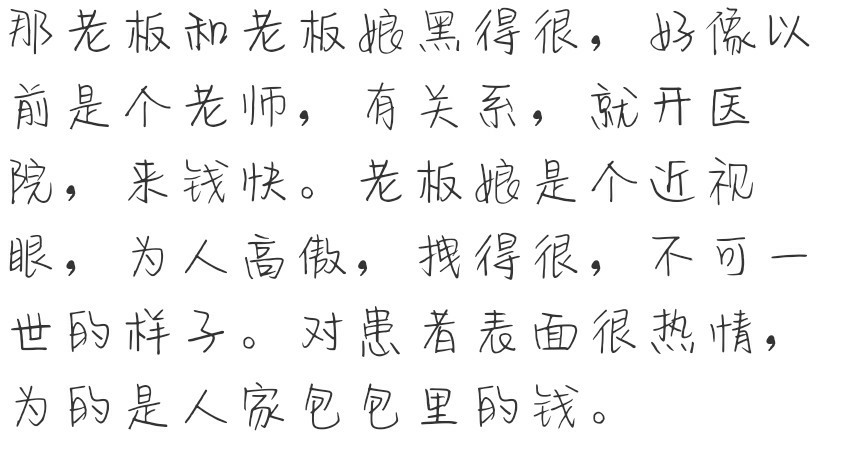 那老板和老板娘黑得很，好像以
前是个老师，有关系，就开医
院，来钱快。老板娘是个近视
眼，为人高傲，拽得很，不可一
世的样子。对患者表面很热情，
为的是人家包包里的钱。